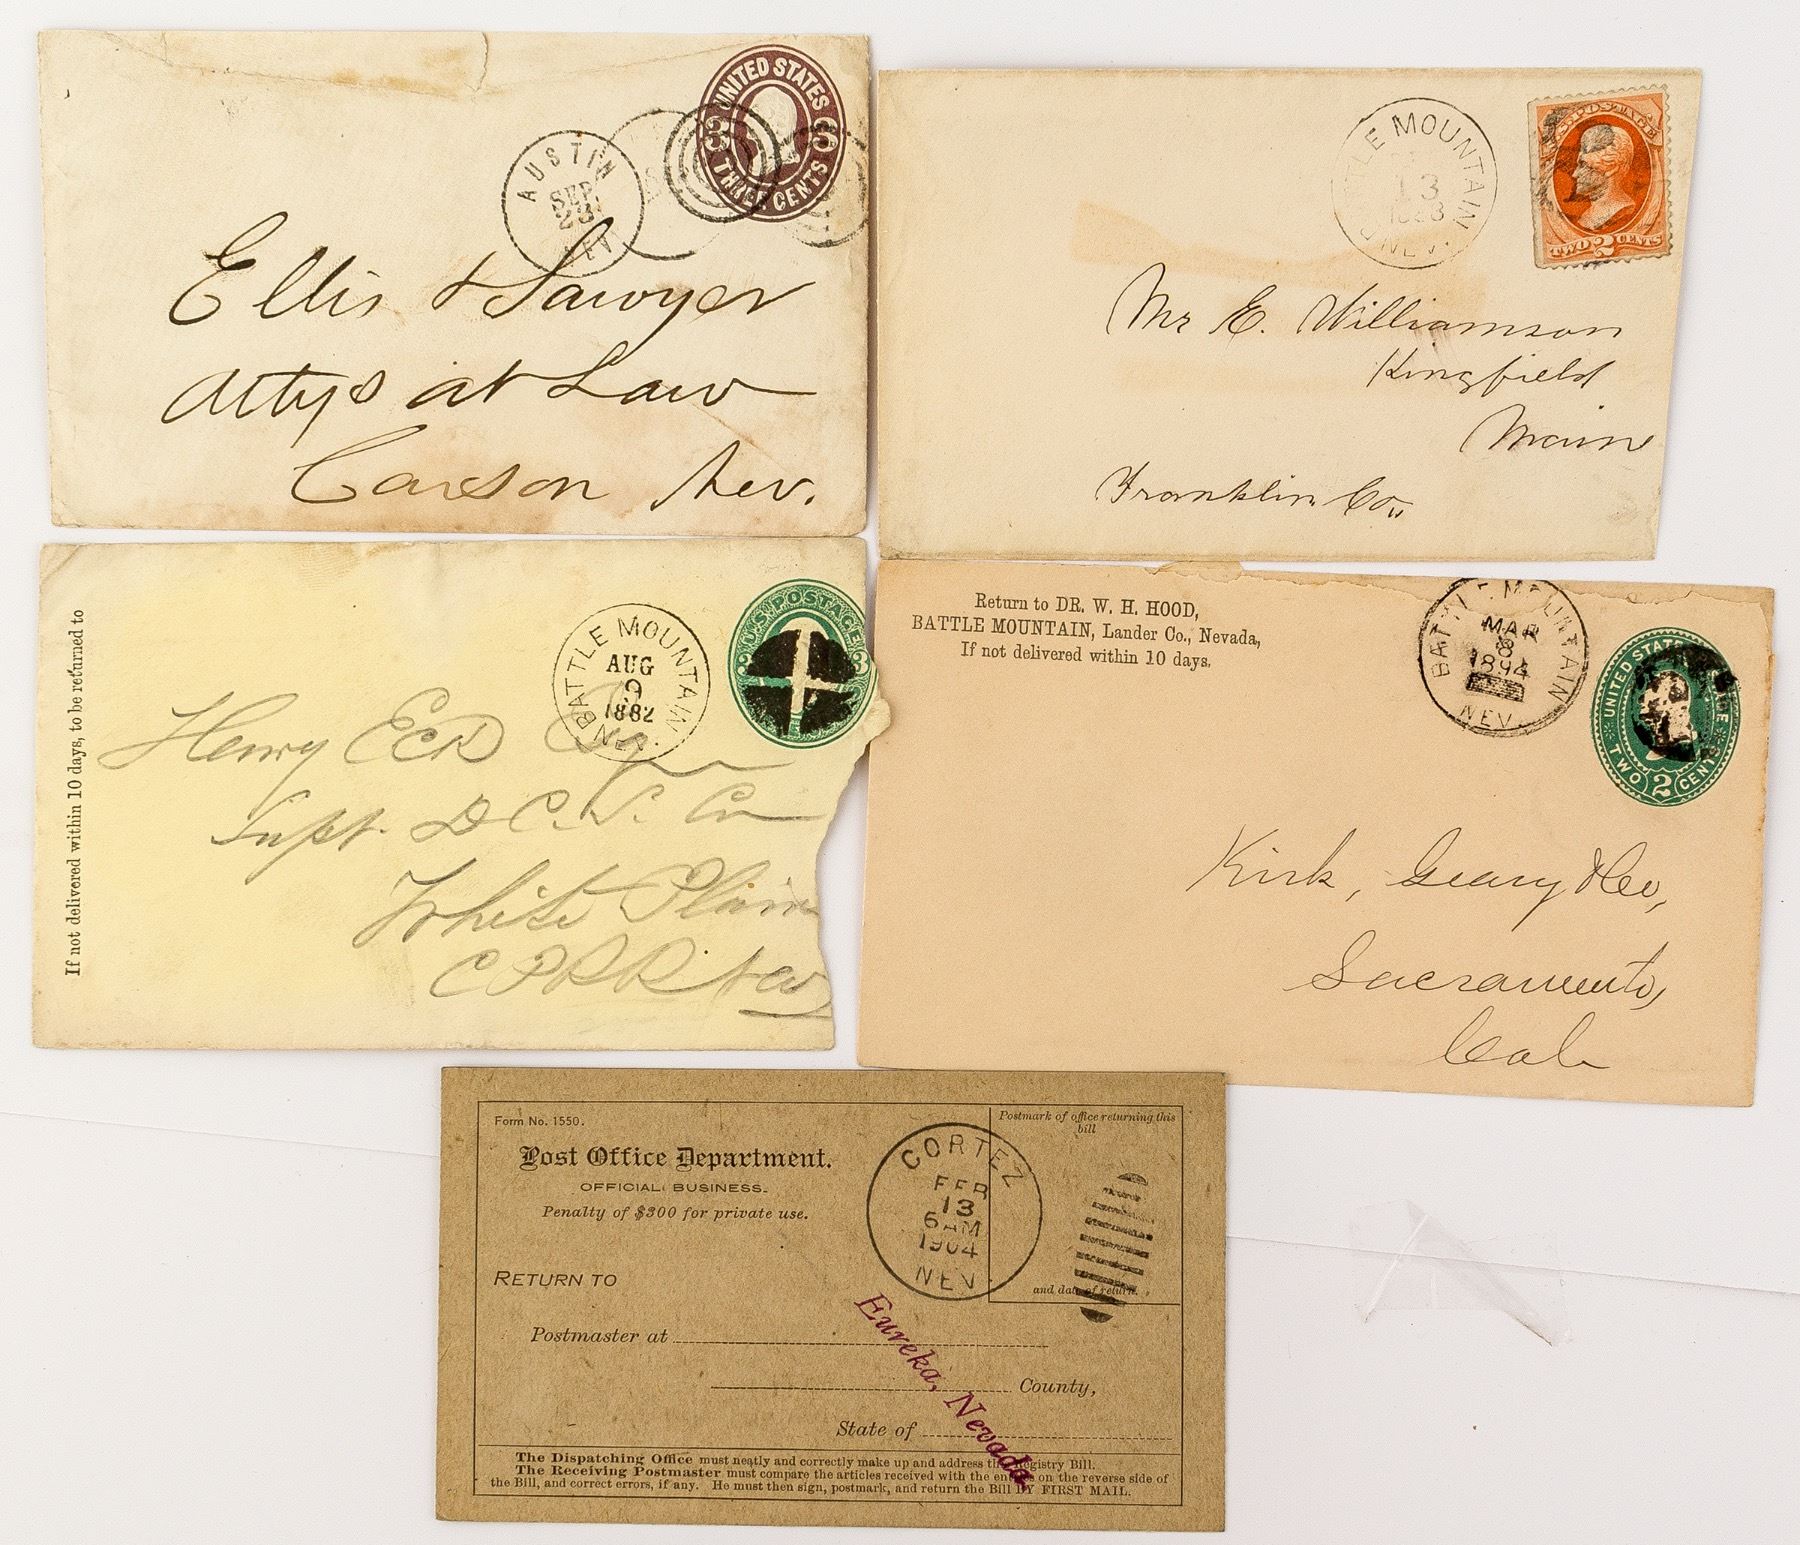 UNITED STATES
3 3
THREE CENTS
AUSTIN
SEP
23
NEV
Ellis & Sawyer
Attys at Law
Carson Nev.
BATTLE MOUNTAIN
13
NEV.
U.S. POSTAGE
TWO 2 CENTS
Mr E. Williamson
Kingfield
Maine
Franklin Co.,
If not delivered within 10 days, to be returned to
BATTLE MOUNTAIN
AUG
9
1882
NEV.
U.S. POSTAGE
3
Henry
Supt.
White Plains
C P R R Nev
Return to DR. W. H. HOOD,
BATTLE MOUNTAIN, Lander Co., Nevada,
If not delivered within 10 days.
BATTLE MOUNTAIN
MAR
8
1894
NEV.
UNITED STATES
TWO 2 CENTS
Kirk, Geary & Co,
Sacramento,
Cal
Form No. 1550.
Post Office Department.
OFFICIAL BUSINESS.
Penalty of $300 for private use.
CORTEZ
FEB
13
6 AM
1904
NEV.
Postmark of office returning this
bill
and date of return.
RETURN TO
Postmaster at
County,
State of
Eureka, Nevada
The Dispatching Office must neatly and correctly make up and address the Registry Bill.
The Receiving Postmaster must compare the articles received with the entries on the reverse side of
the Bill, and correct errors, if any. He must then sign, postmark, and return the Bill BY FIRST MAIL.